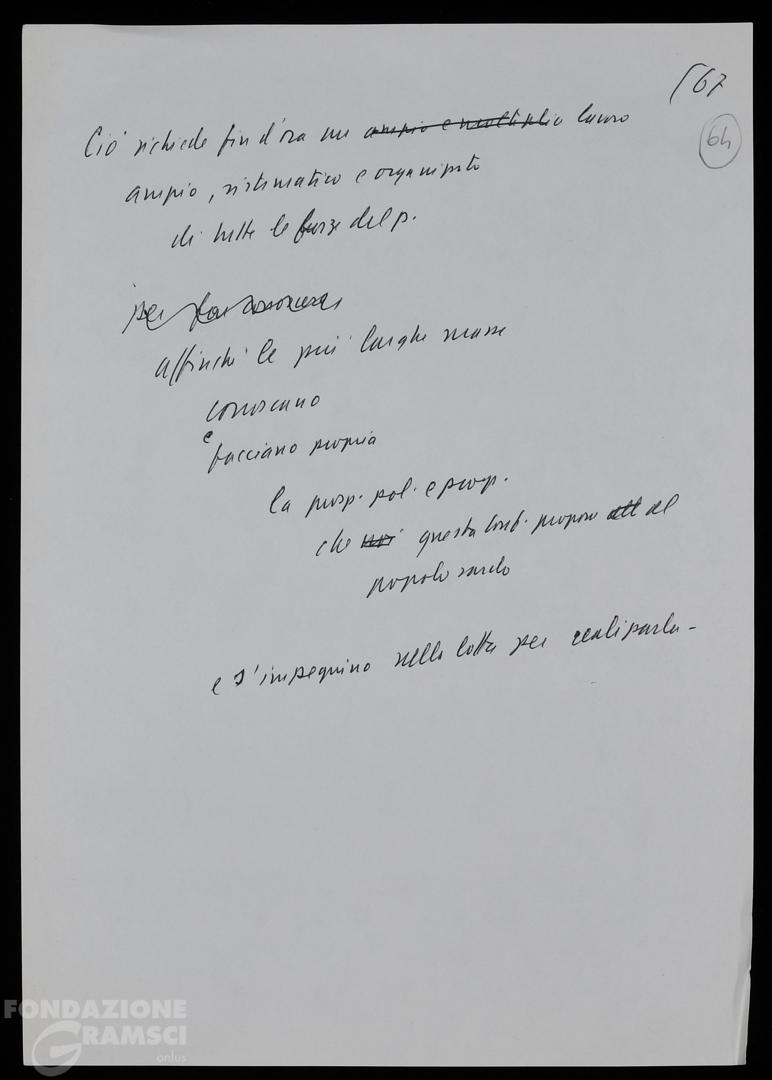 67
64
Ciò richiede fin d'ora un ampio e molteplice lavoro
ampio, sistematico e organizzato
di tutte le forze del p.
per far conoscere
affinché le più larghe masse
conoscano
e
facciano propria
la prosp. pol. e prop.
che noi questa Conf. propone al
popolo sardo
e s'impegnino nella lotta per realizzarla -
FONDAZIONE
GRAMSCI
onlus